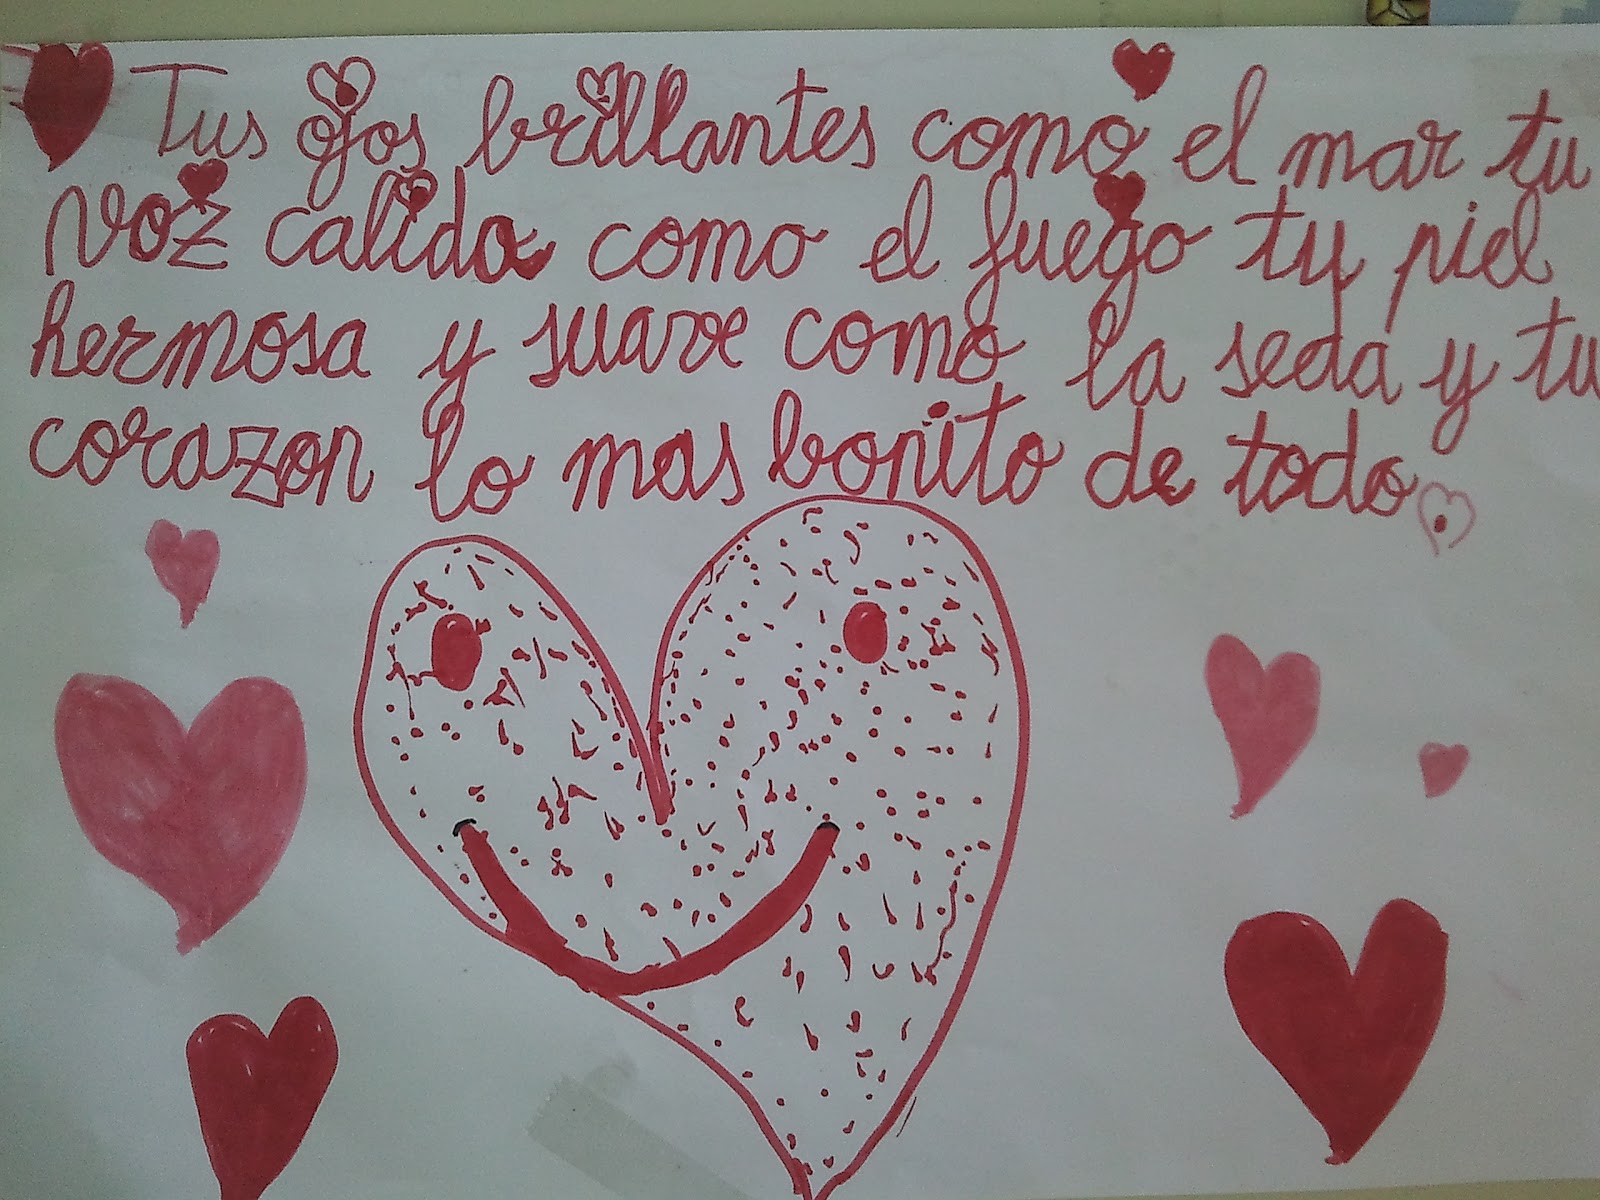 Tus ojos brillantes como el mar tu
voz calida como el fuego tu piel
hermosa y suave como la seda y tu
corazon lo mas bonito de todo.